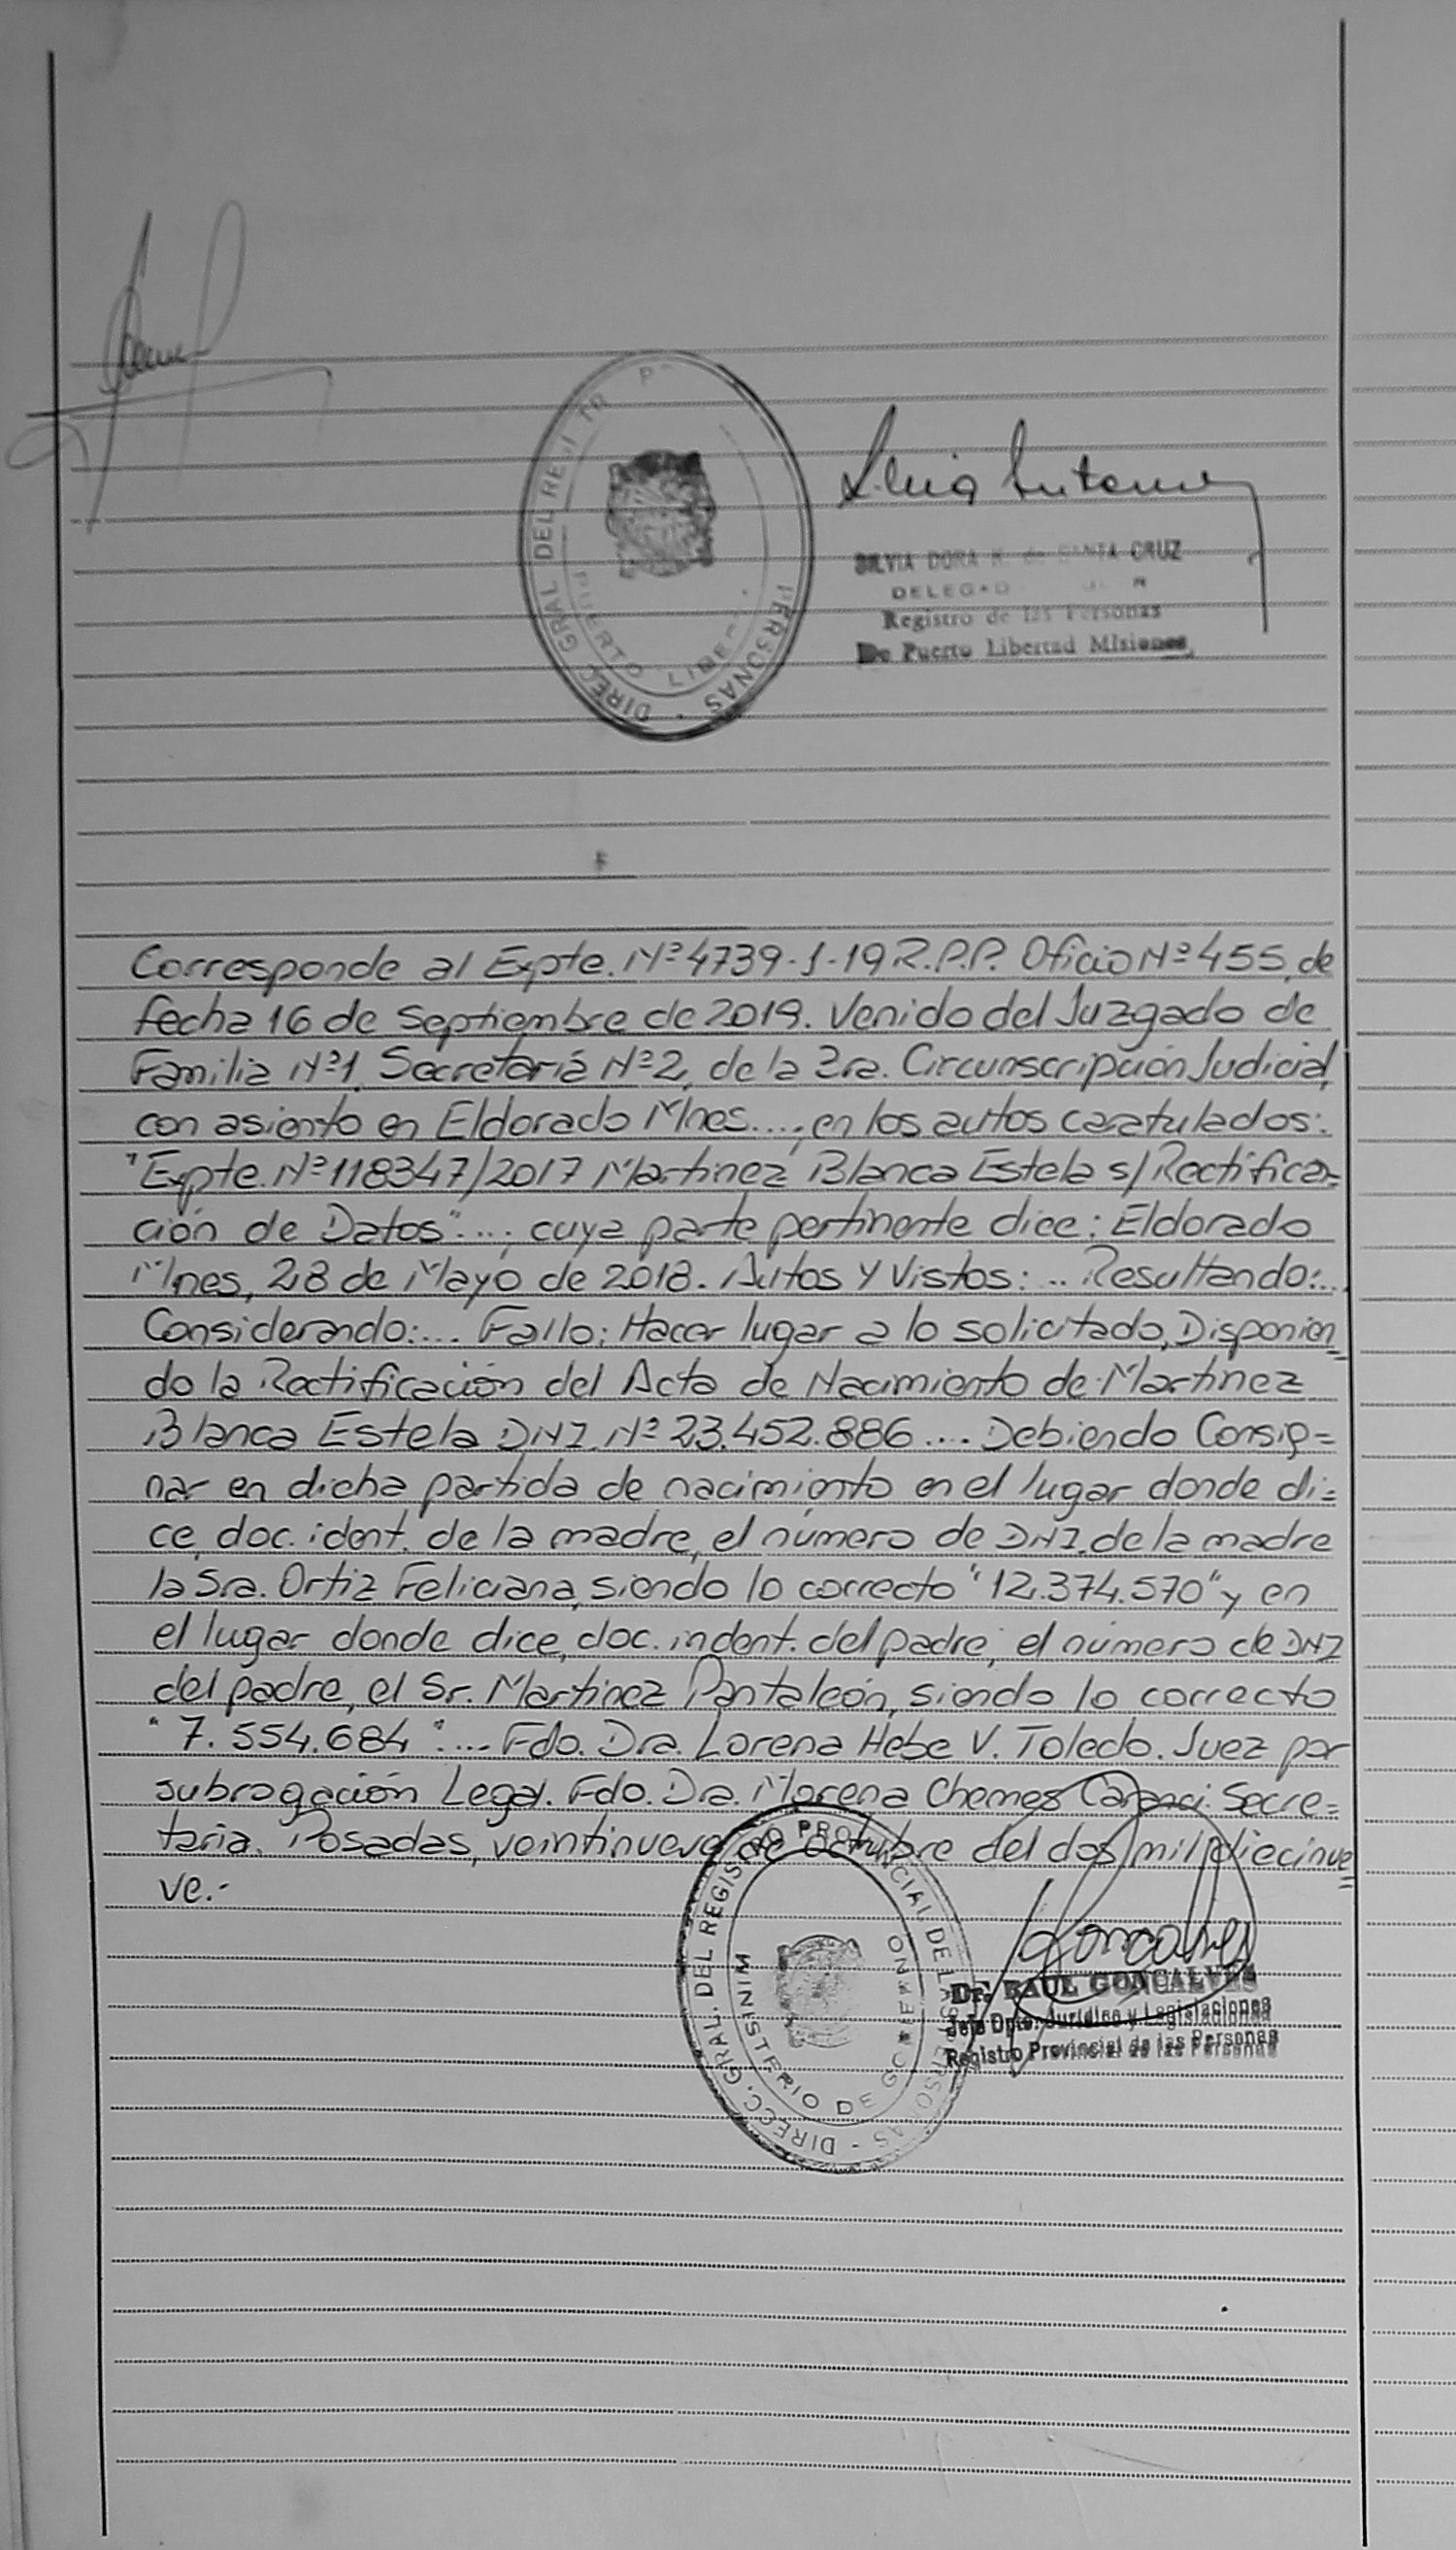 DIRECC GRAL DEL REGI TR P PERSONAS
PUERTO LIBER
SILVIA DORA R. de SANTA CRUZ
DELEGAD
Registro de las Personas
De Puerto Libertad Misiones
Corresponde al Expte. Nº 4739-S-19 R.P.P. Oficio Nº 455, de
fecha 16 de Septiembre de 2019. Venido del Juzgado de
Familia Nº1, Secretaría Nº2, de la 3ra. Circunscripción Judicial,
con asiento en Eldorado Mnes....; en los autos caratulados:
"Expte. Nº 118347/2017 Martinez Blanca Estela s/ Rectifica=
ción de Datos"....; cuya parte pertinente dice: Eldorado
Mnes, 28 de Mayo de 2018. Autos y Vistos:... Resultando:...
Considerando:.... Fallo: Hacer lugar a lo solicitado, Disponien=
do la Rectificación del Acta de Nacimiento de Martinez
Blanca Estela DNI. Nº 23.452.886.... Debiendo Consig=
nar en dicha partida de nacimiento en el lugar donde di=
ce, doc. ident. de la madre, el número de DNI. de la madre
la Sra. Ortiz Feliciana, siendo lo correcto "12.374.570" y en
el lugar donde dice, doc. indent. del padre, el número de DNI
del padre, el Sr. Martinez Pantaleón, siendo lo correcto
"7.554.684".... Fdo. Dra. Lorena Hebe V. Toledo. Juez por
subrogación Legal. Fdo. Dra. Morena Chemes Secre=
taria. Posadas, veintinueve de Octubre del dos mil diecinue=
ve.-
DIRECC. GRAL. DEL REGISTRO PROVINCIAL DE LAS PERSONAS -
MINISTERIO DE GOBIERNO
Dr. RAUL GONCALVES
Jefe Dpto. Jurídico y Legislaciones
Registro Provincial de las Personas